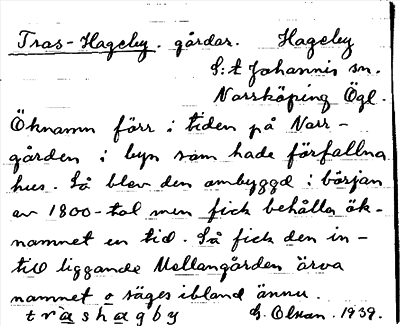 Tras-Hageby. gårdar. Hageby
S:t Johannis sn.
Norrköping Ögl.
Öknamn förr i tiden på Norr-
gården i byn som hade förfallna
hus. Så blev den ombyggd i början
av 1800-tal men fick behålla ök-
namnet en tid. Så fick den in-
till liggande Mellangården ärva
namnet o säges ibland ännu.
tràshagby G. Olson. 1939.